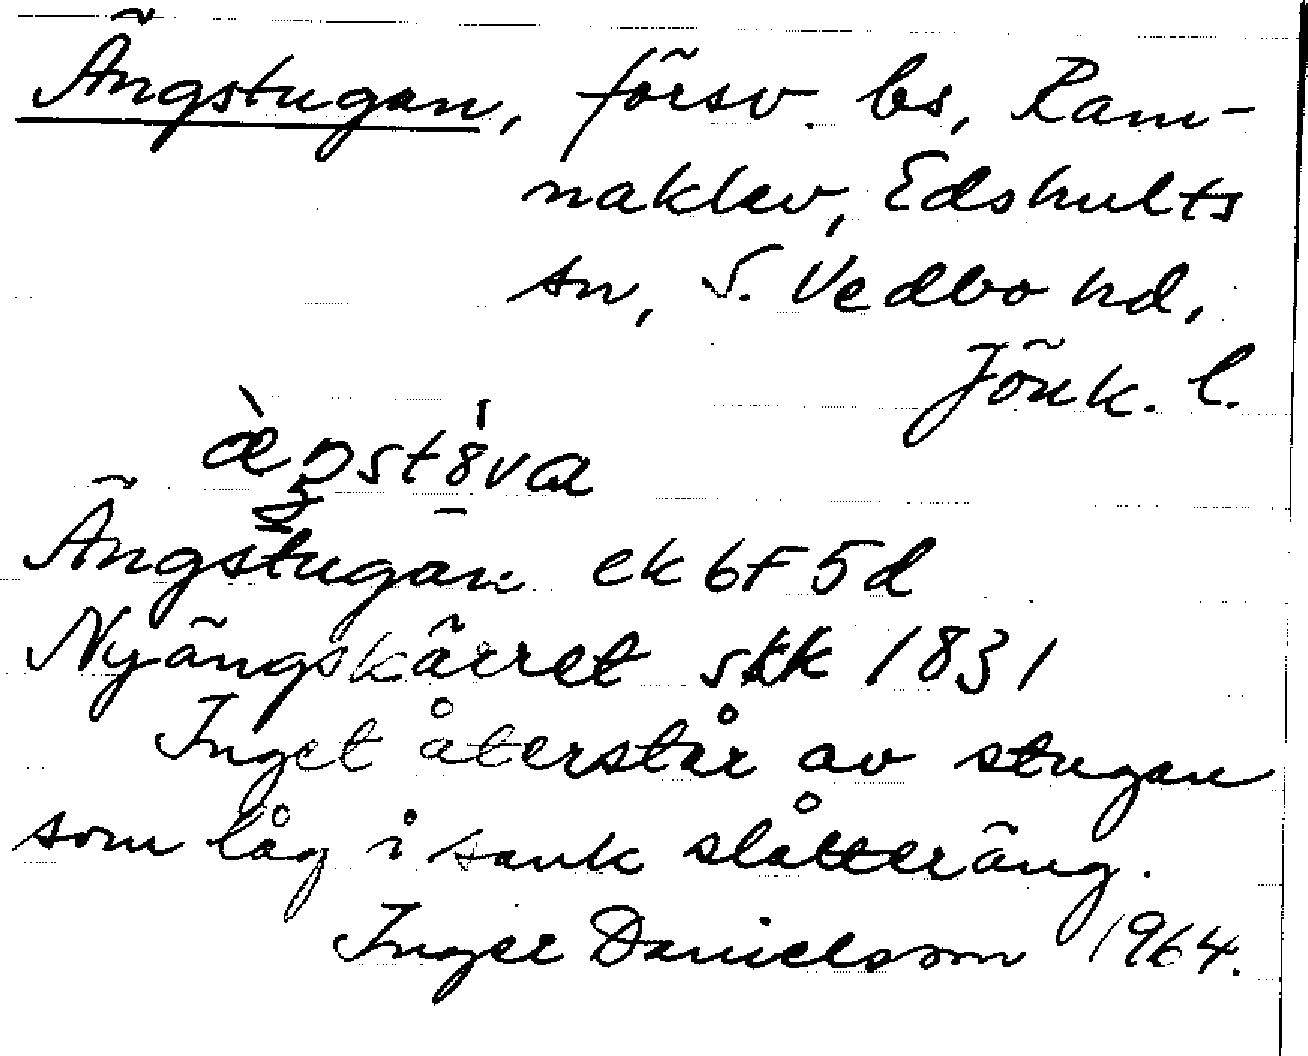 Ängstugan, försv. bs, Ram-
naklev, Edshults
sn, S. Vedbo hd,
Jönk. l.
Ängstugan ek 6F5d
Nyängskärret skk 1831
Inget återstår av stugan
som låg i sank slåtteräng.
Inger Danielsson 1964.